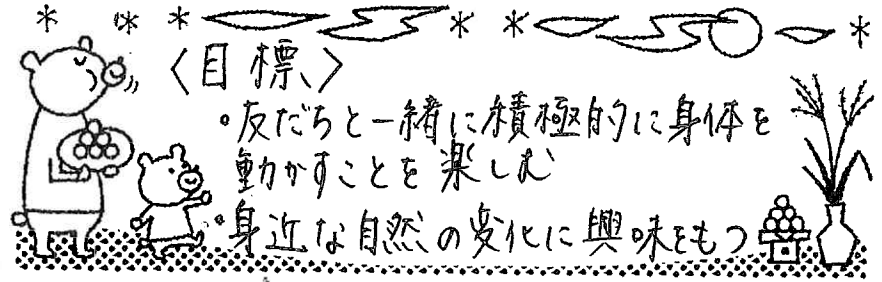 〈目標〉
・友だちと一緒に積極的に身体を
動かすことを楽しむ
・身近な自然の変化に興味をもつ